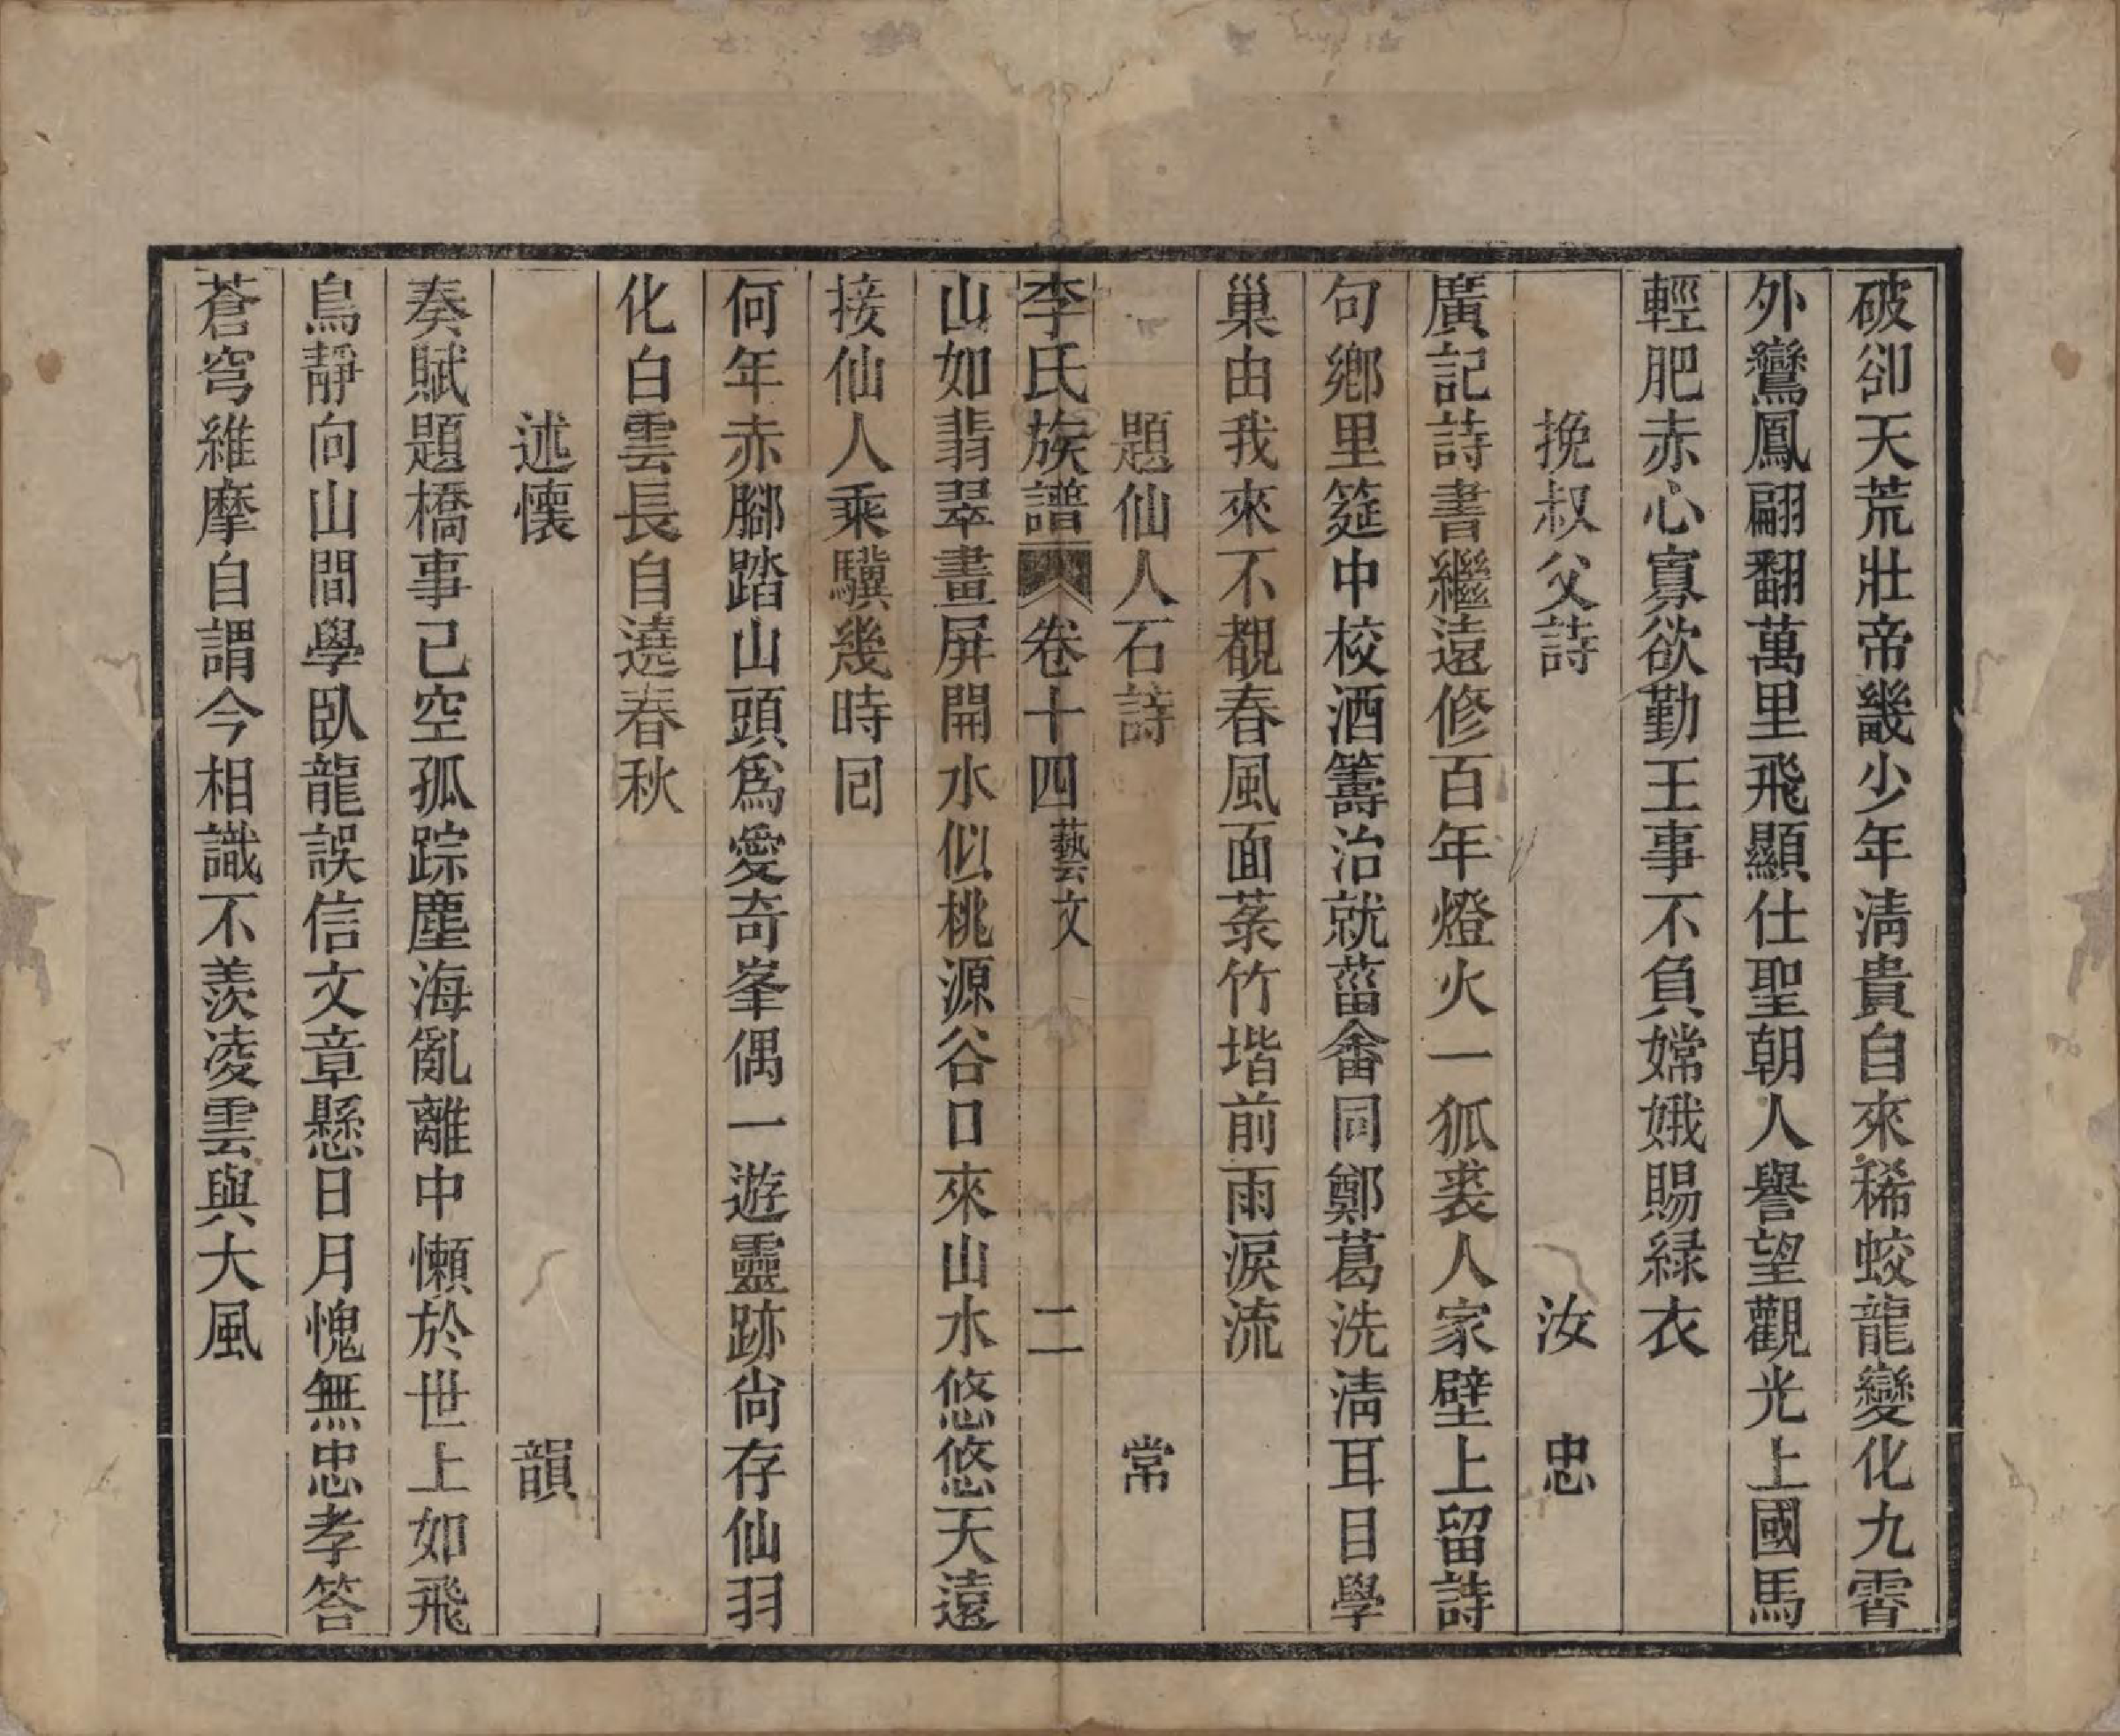 破卻天荒壯帝畿少年清貴自來稀蛟龍變化九霄
外鸞鳳翩翻萬里飛顯仕聖朝人譽望觀光上國馬
輕肥赤心寡欲勤王事不負嫦娥賜緑衣
挽叔父詩 汝 忠
廣記詩書繼遠修百年燈火一狐裘人家壁上留詩
句鄉里筵中校酒籌治就菑畬同鄭葛洗清耳目學
巢由我來不覩春風面菉竹堦前雨淚流
題仙人石詩 常
李氏族譜 卷十四 藝文 二
山如翡翠畫屏開水似桃源谷口來山水悠悠天遠
接仙人乘驥幾時囘
何年赤腳踏山頭爲愛奇峯偶一遊靈跡尙存仙羽
化白雲長自遶春秋
述懷 韻
奏賦題橋事已空孤踪塵海亂離中懶於世上如飛
鳥靜向山間學臥龍誤信文章懸日月愧無忠孝答
蒼穹維摩自謂今相識不羨凌雲與大風